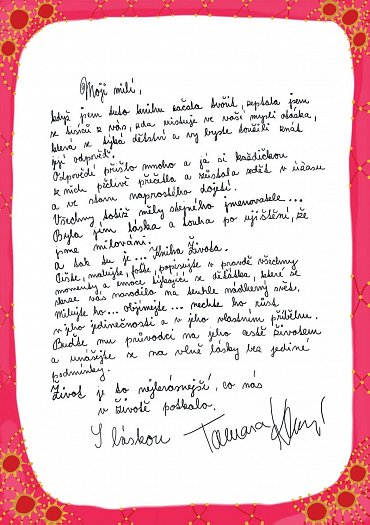 Moji milí,
když jsem tuto knihu začala tvořit, zeptala jsem
se tisíců z vás, zda existuje ve vaší mysli otázka,
která se týká dětství a vy byste toužili znát
její odpověď.
Odpovědí přišlo mnoho a já si každičkou
z nich pečlivě přečetla a zůstala sedět v úžasu
a ve stavu naprostého dojetí.
Všechny totiž měly stejného jmenovatele...
Byla jím láska a touha po ujištění, že
jsme milováni.
A tak tu je... Kniha Života.
Pište, malujte, foťte, popisujte v pravdě všechny
momenty a emoce týkající se děťátka, které se
skrze vás narodilo na tenhle nádherný svět.
Milujte ho... objímejte... nechte ho růst
v jeho jedinečnosti a v jeho vlastním příběhu.
Buďte mu průvodci na jeho cestě životem
a unášejte se na vlně lásky bez jediné
podmínky.
Život je to nejkrásnější, co nás
v životě potkalo.
S láskou Tamara